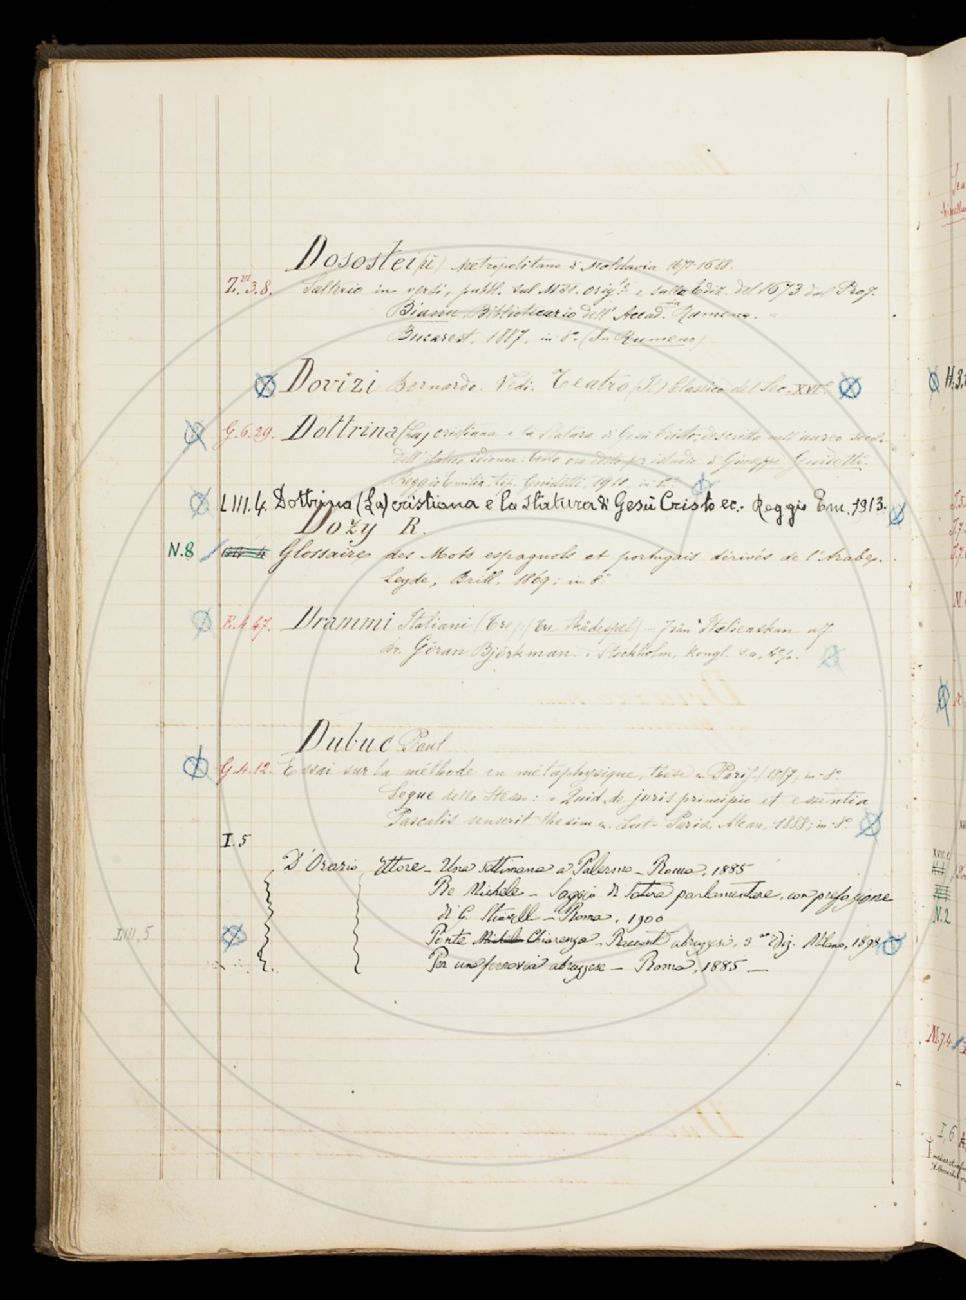 Dosostei(ü) Metropolitano di Moldavia 1671-1688.
Z.m.3.8. Salterio in versi, pubbl. sul Mss. orig.le e sulla Ediz. del 1673 dal Prof.
Bianu Bibliotecario dell' Accad. Rumena.
Bucarest. 1887. in-8° (In Rumeno)
Dovizi Bernardo. Vedi: Teatro (Il) Classico del Sec. XVI°
G.6.29. Dottrina (La) cristiana e la Statura di Gesù Cristo, descritta nell'aureo secolo
dell'italico idioma: testo ora edito per istudio di Giuseppe Guidetti.
Reggio Emilia. Tip. Guidetti, 1910. in 8°
L III.4. Dottrina (La) cristiana e la Statura di Gesù Cristo ec. Reggio Em. 1913.
Dozy R.
N.8 Glossaire des Mots espagnols et portugais dérivés de l'Arabe.
Leyde, Brill. 1869; in 8°
E.4.47. Drammi Italiani (Tre) (Tre Skådespel) - från Italienskan af
Dr. Göran Björkman. Stockholm, Kongl.
Dubuc Paul
G.4.12. Essai sur la méthode en métaphysique, thèse. Paris, 1887, in-8°
Segue dello Stesso: Quid de juris principio et essentia
Pascalis senserit thesim. Paris, Alcan, 1888; in-8°
I.5
D'Orazio Ettore - Una settimana a Palermo - Roma, 1885
Re Michele - Saggio di satira parlamentare, con prefazione
di C. - Roma, 1900
I.VII,5 Ponte Michele Chiarenza - Racconti abruzzesi, 3a Ediz. Milano, 1898
Per una ferrovia abruzzese - Roma, 1885 -
H.3.
N.2
M.7.4.
I,6